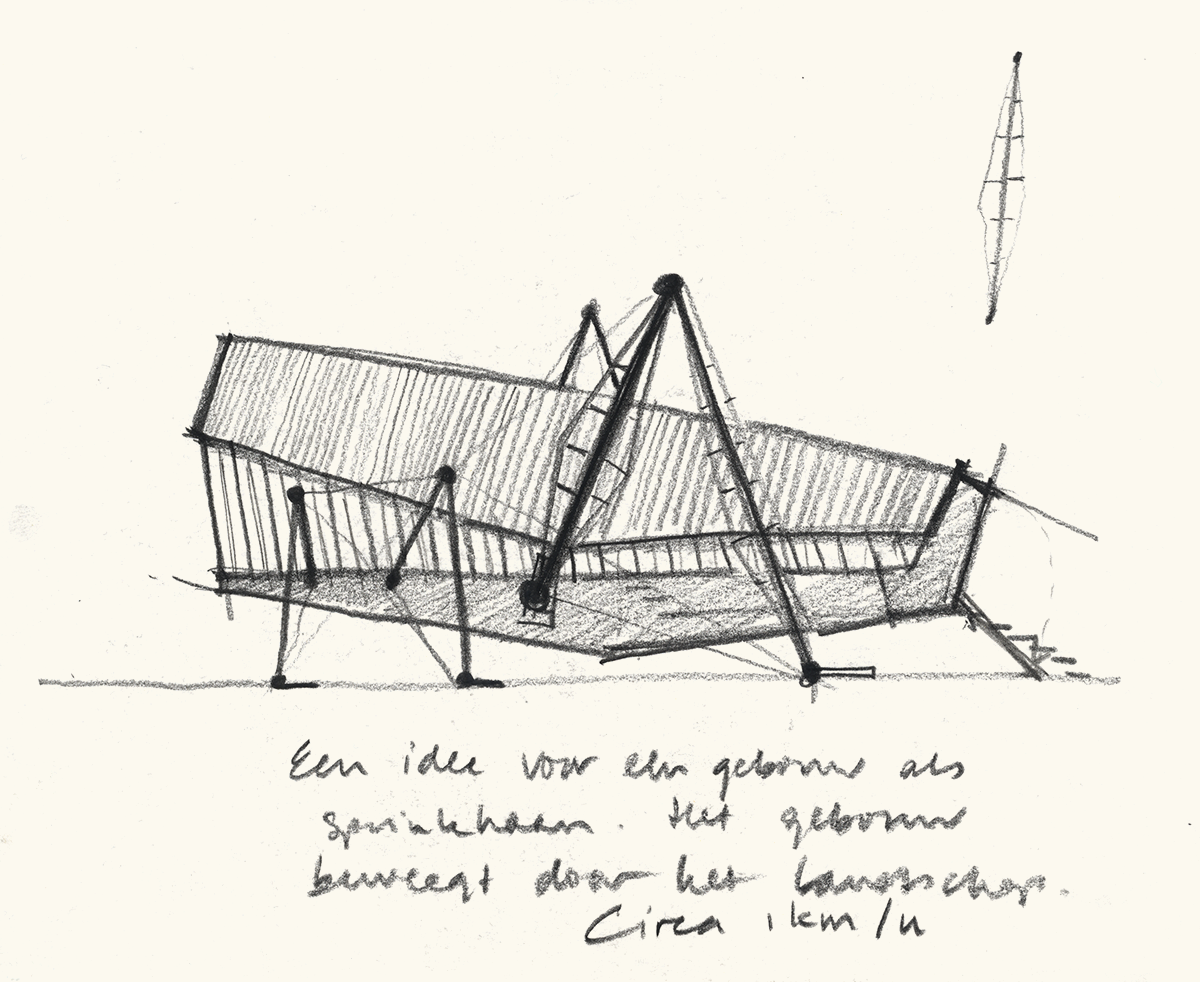 Een idee voor een gebouw als
sprinkhaan. Het gebouw
beweegt door het landschap.
Circa 1 km/u